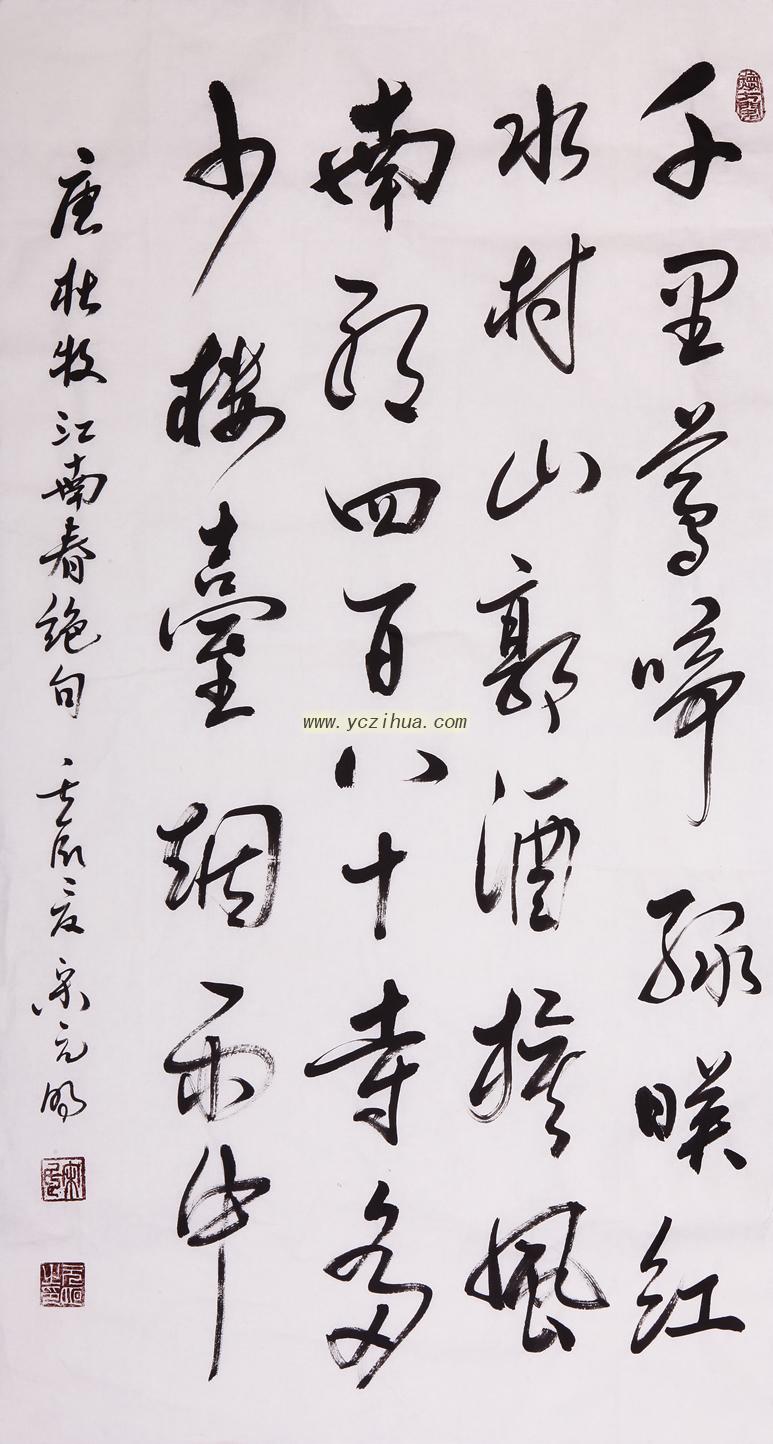 千里鶯啼綠映紅
水村山郭酒旗風
南朝四百八十寺多
少樓臺烟雨中
唐杜牧江南春絕句 辰夏宋元
www.yczihua.com